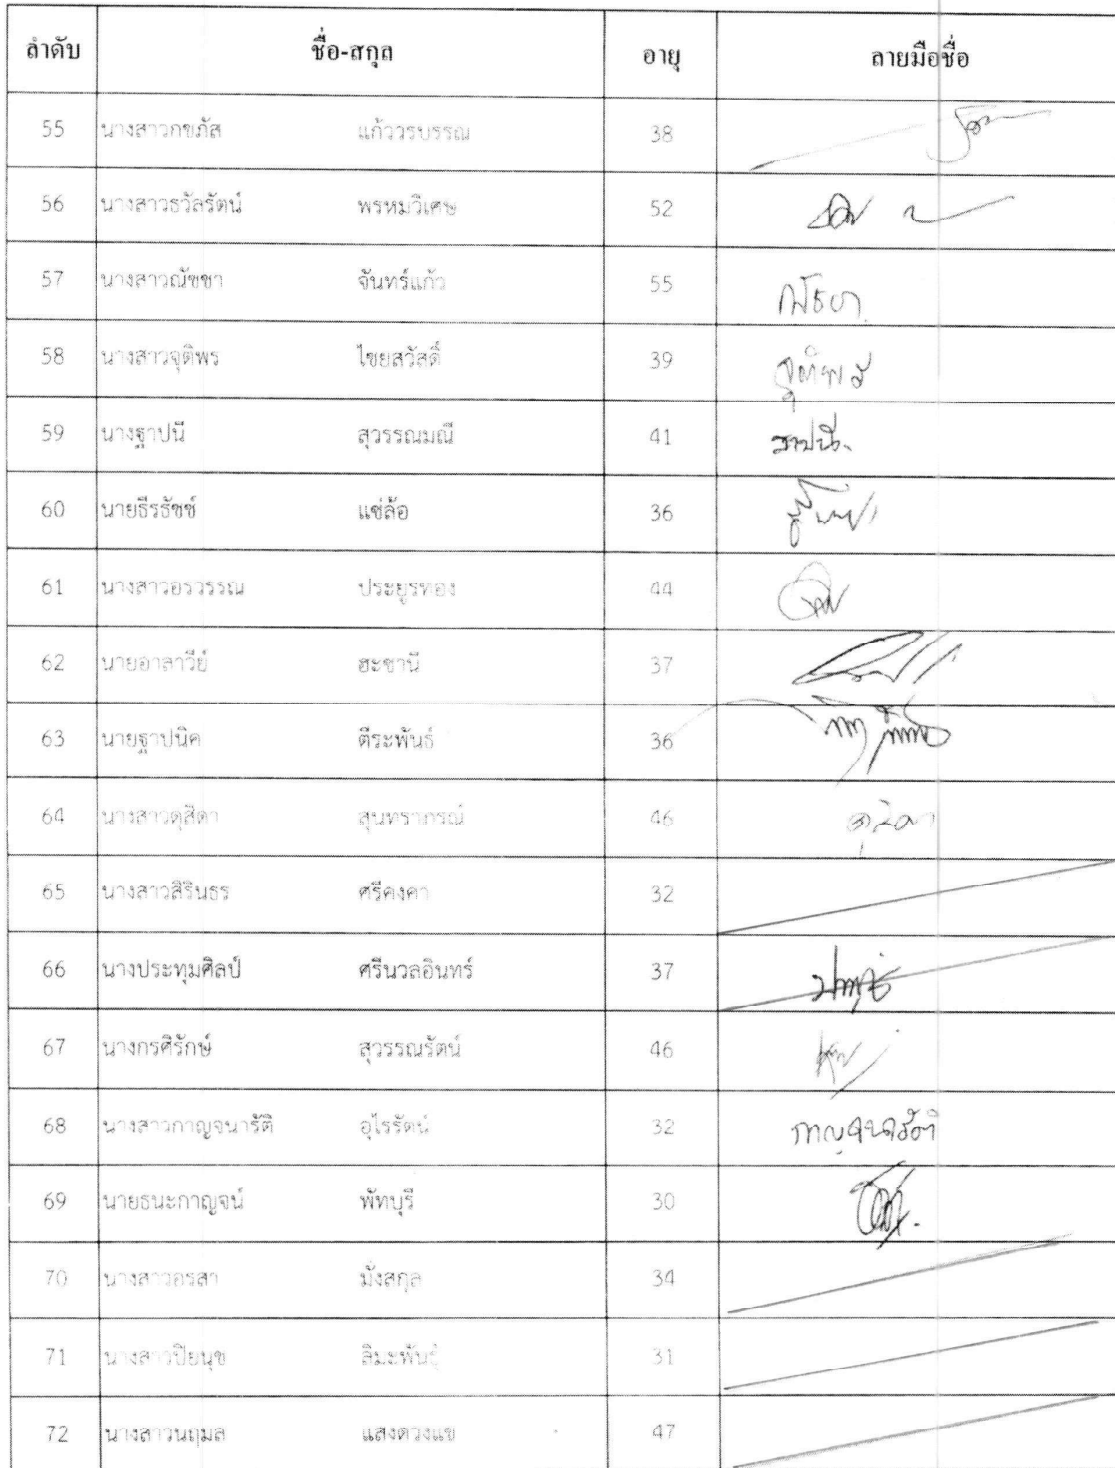 ลำดับ ชื่อ-สกุล อายุ ลายมือชื่อ
55 นางสาวกชภัส แก้ววรบรรณ 38
56 นางสาวธวัลรัตน์ พรหมวิเศษ 52
57 นางสาวณัชชา จันทร์แก้ว 55
58 นางสาวจุติพร ไชยสวัสดิ์ 39 จุติพร
59 นางฐาปนี สุวรรณมณี 41 ฐาปนี
60 นายธีรธัชช์ แซ่ล้อ 36
61 นางสาวอรวรรณ ประยูรทอง 44
62 นายอาลาวีย์ ฮะซานี 37
63 นายฐาปนิค ตีระพันธ์ 36
64 นางสาวดุสิดา สุนทราภรณ์ 46 ดุสิดา
65 นางสาวสิรินธร ศรีคงคา 32
66 นางประทุมศิลป์ ศรีนวลอินทร์ 37
67 นางกรศิรักษ์ สุวรรณรัตน์ 46
68 นางสาวกาญจนารัติ อุไรรัตน์ 32 กาญจนารัติ
69 นายธนะกาญจน์ พัทบุรี 30
70 นางสาวอรสา มั่งสกุล 34
71 นางสาวปิยนุช ลิมะพันธุ์ 31
72 นางสาวนฤมล แสงดวงแข 47